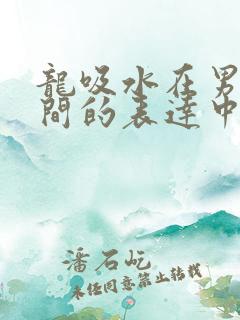 龍吸水在男
間的表達中
潘石屹
未任同意禁止转载